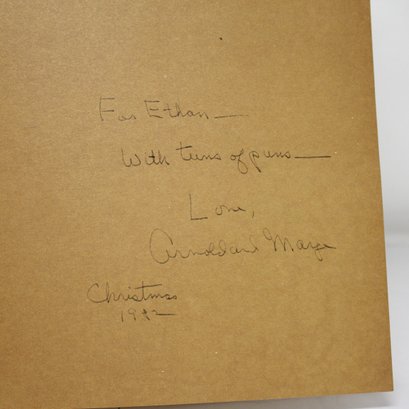 For Ethan—
With tuns of puns—
Love,
Arnold and Marge
Christmas
1982